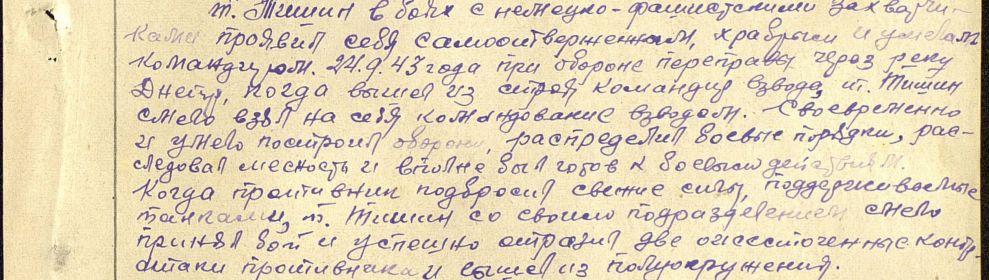 т. Тишин в боях с немецко-фашистскими захватчи-
ками проявил себя самоотверженным, храбрым и умелым
командиром. 24.9.43 года при обороне переправы через реку
Днепр, когда вышел из строя командир взвода, т. Тишин
смело взял на себя командование взводом. Своевременно
и умело построил оборону, распределил боевые порядки, рас-
следовал месность и вполне был готов к боевым действиям.
Когда противник подбросил свежие силы, поддерживаемые
танками, т. Тишин со своим подразделением смело
принял бой и успешно отразил две ожесточенные контр
атаки противника и вышел из полуокружения.